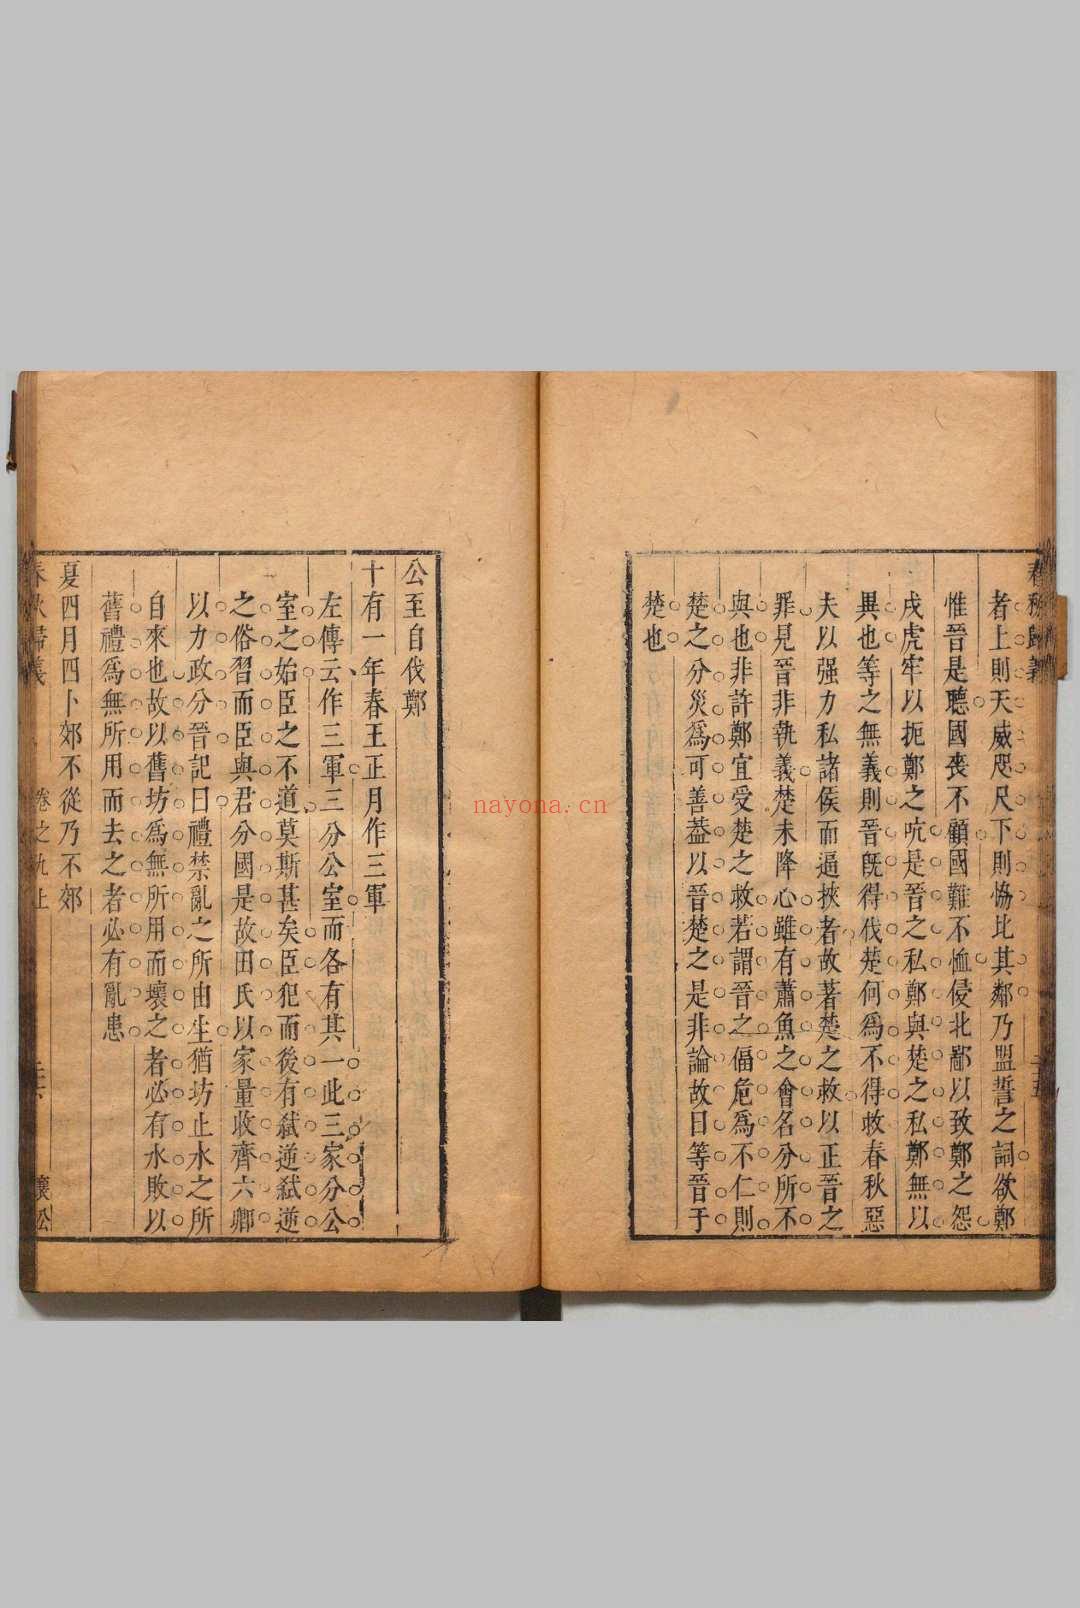 春秋歸義
二十五
者上則天威咫尺下則恊比其鄰乃盟誓之詞欲鄭
惟晉是聽國喪不顧國難不恤侵北鄙以致鄭之怨
戍虎牢以扼鄭之吭是晉之私鄭與楚之私鄭無以
異也等之無義則晉旣得伐楚何爲不得救春秋惡
夫以强力私諸侯而逼挾者故著楚之救以正晉之
罪見晉非執義楚未降心雖有蕭魚之會名分所不
與也非許鄭宜受楚之救若謂晉之偪危爲不仁則
楚之分災爲可善葢以晉楚之是非論故曰等晉于
楚也
公至自伐鄭
十有一年春王正月作三軍
左傳云作三軍三分公室而各有其一此三家分公
室之始臣之不道莫斯甚矣臣犯而後有弑逆弑逆
之俗習而臣與君分國是故田氏以家量收齊六卿
以力政分晉記曰禮禁亂之所由生猶坊止水之所
自來也故以舊坊爲無所用而壞之者必有水敗以
舊禮爲無所用而去之者必有亂患
夏四月四卜郊不從乃不郊
春秋歸義
卷之九上
二十六
襄公
nayona.cn